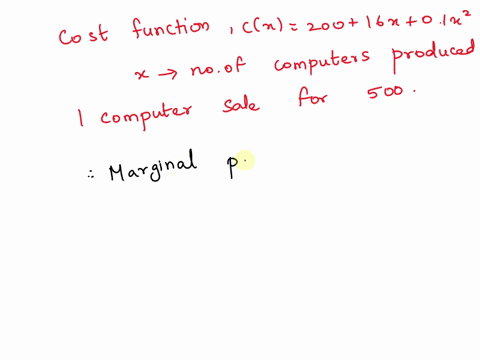 Cost function, C(x) = 200 + 16x + 0.1x²
x → no. of computers produced
1 computer sale for 500.
∴ Marginal p